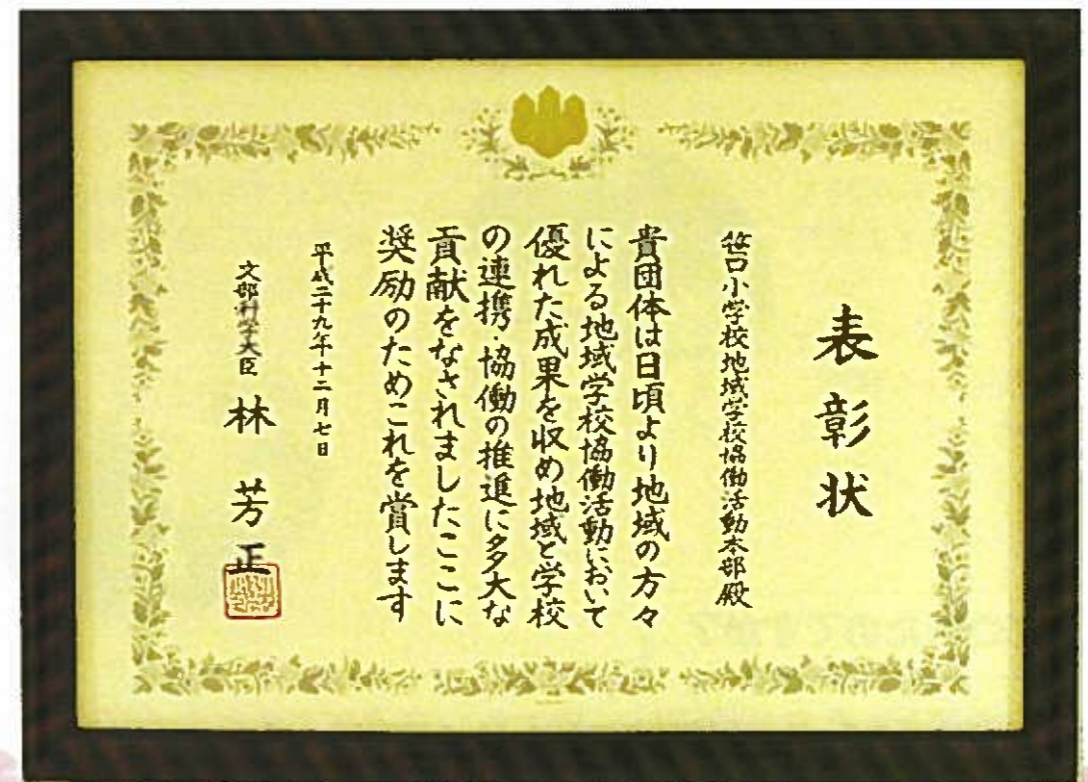 表彰状
笹口小学校地域学校協働活動本部殿
貴団体は日頃より地域の方々
による地域学校協働活動において
優れた成果を収め地域と学校
の連携・協働の推進に多大な
貢献をなされましたここに
奨励のためこれを賞します
平成二十九年十二月七日
文部科学大臣 林 芳正